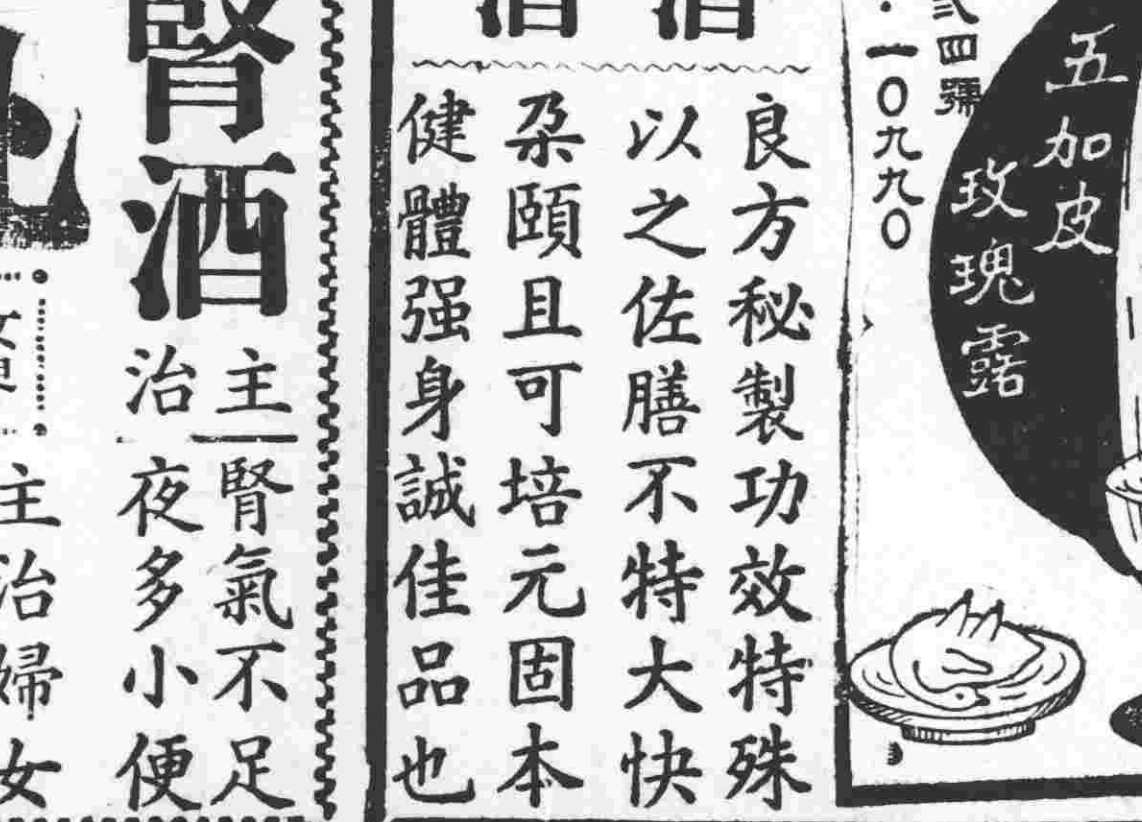 五加皮
玫瑰露
四號
一〇九九〇
酒
酒
良方秘製功效特殊
以之佐膳不特大快
朵頤且可培元固本
健體强身誠佳品也
腎酒
主
治
腎氣不足
夜多小便
主治婦女